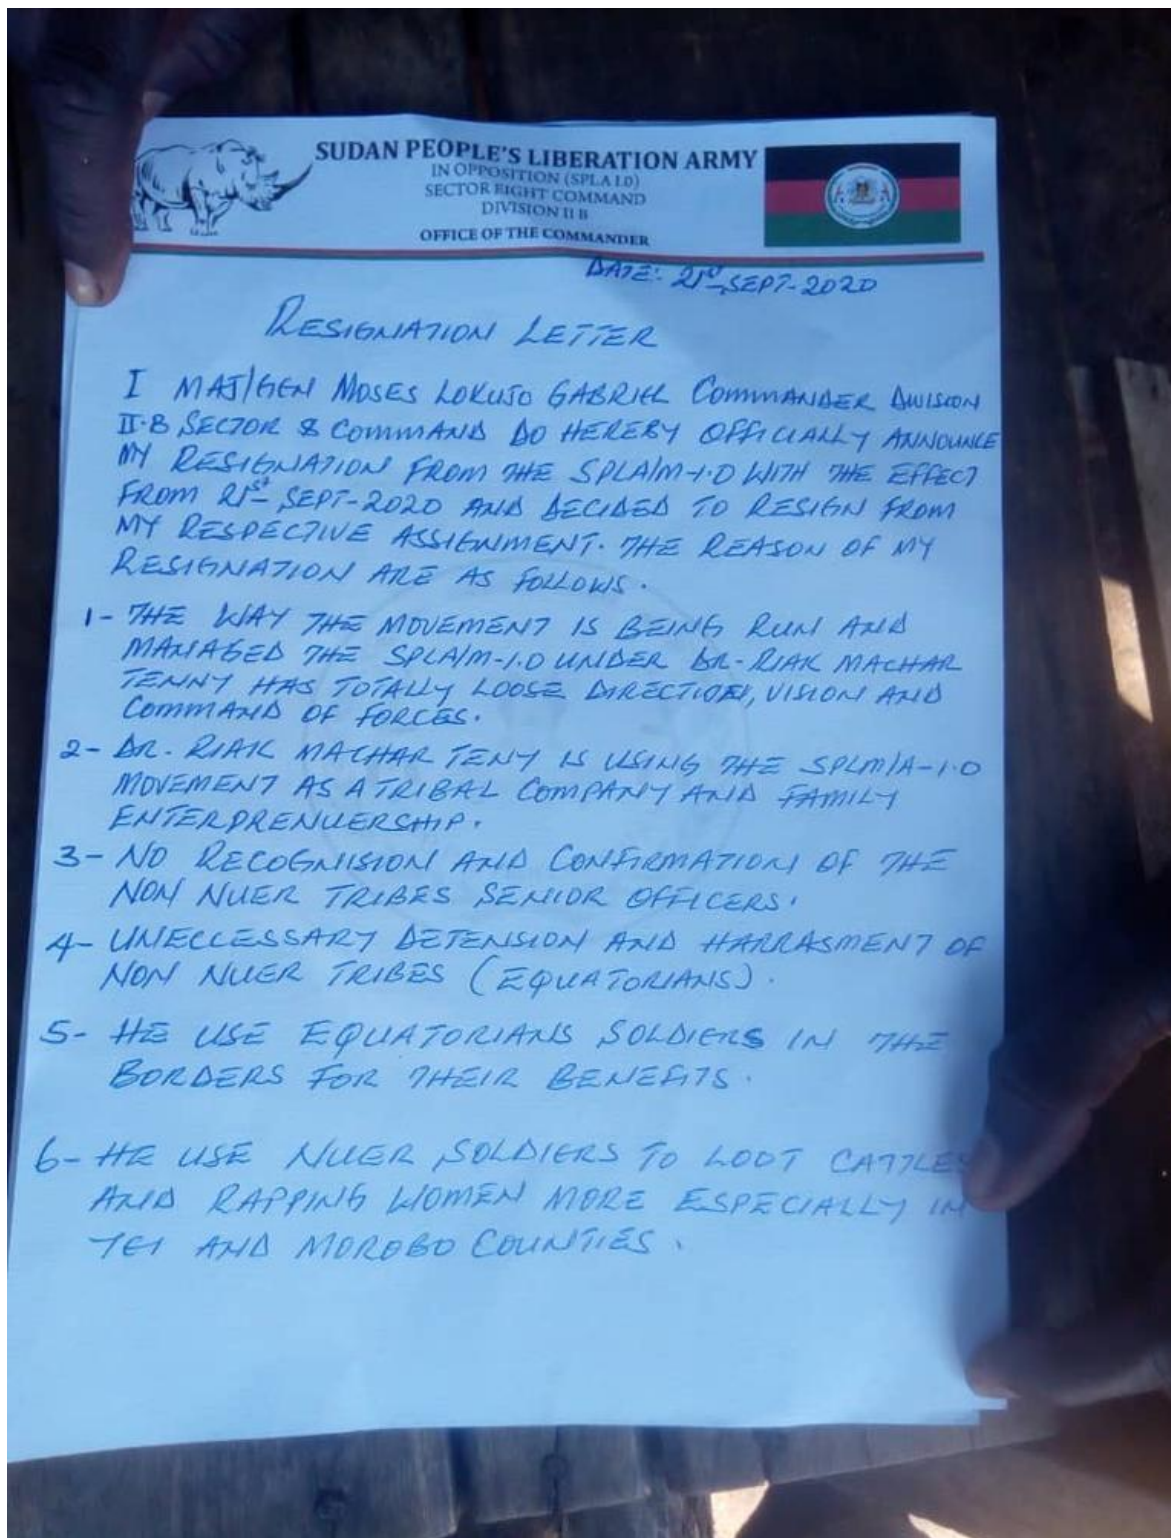 SUDAN PEOPLE'S LIBERATION ARMY
IN OPPOSITION (SPLA I.O)
SECTOR EIGHT COMMAND
DIVISION II B
OFFICE OF THE COMMANDER
DATE: 21st SEPT-2020
RESIGNATION LETTER
I MAJ/GEN MOSES LOKUJO GABRIEL COMMANDER DIVISION
II.B SECTOR 8 COMMAND DO HEREBY OFFICIALLY ANNOUNCE
MY RESIGNATION FROM THE SPLA/M-I.O WITH THE EFFECT
FROM 21st SEPT-2020 AND DECIDED TO RESIGN FROM
MY RESPECTIVE ASSIGNMENT. THE REASON OF MY
RESIGNATION ARE AS FOLLOWS.
1- THE WAY THE MOVEMENT IS BEING RUN AND
MANAGED THE SPLA/M-I.O UNDER DR-RIAK MACHAR
TENNY HAS TOTALLY LOOSE DIRECTION, VISION AND
COMMAND OF FORCES.
2- DR. RIAK MACHAR TENY IS USING THE SPLM/A-I.O
MOVEMENT AS A TRIBAL COMPANY AND FAMILY
ENTERPRENUERSHIP.
3- NO RECOGNISION AND CONFIRMATION OF THE
NON NUER TRIBES SENIOR OFFICERS.
4- UNECCESSARY DETENSION AND HARRASMENT OF
NON NUER TRIBES (EQUATORIANS).
5- HE USE EQUATORIANS SOLDIERS IN THE
BORDERS FOR THEIR BENEFITS.
6- HE USE NUER SOLDIERS TO LOOT CATTLES
AND RAPPING WOMEN MORE ESPECIALLY IN
YEI AND MOROBO COUNTIES.